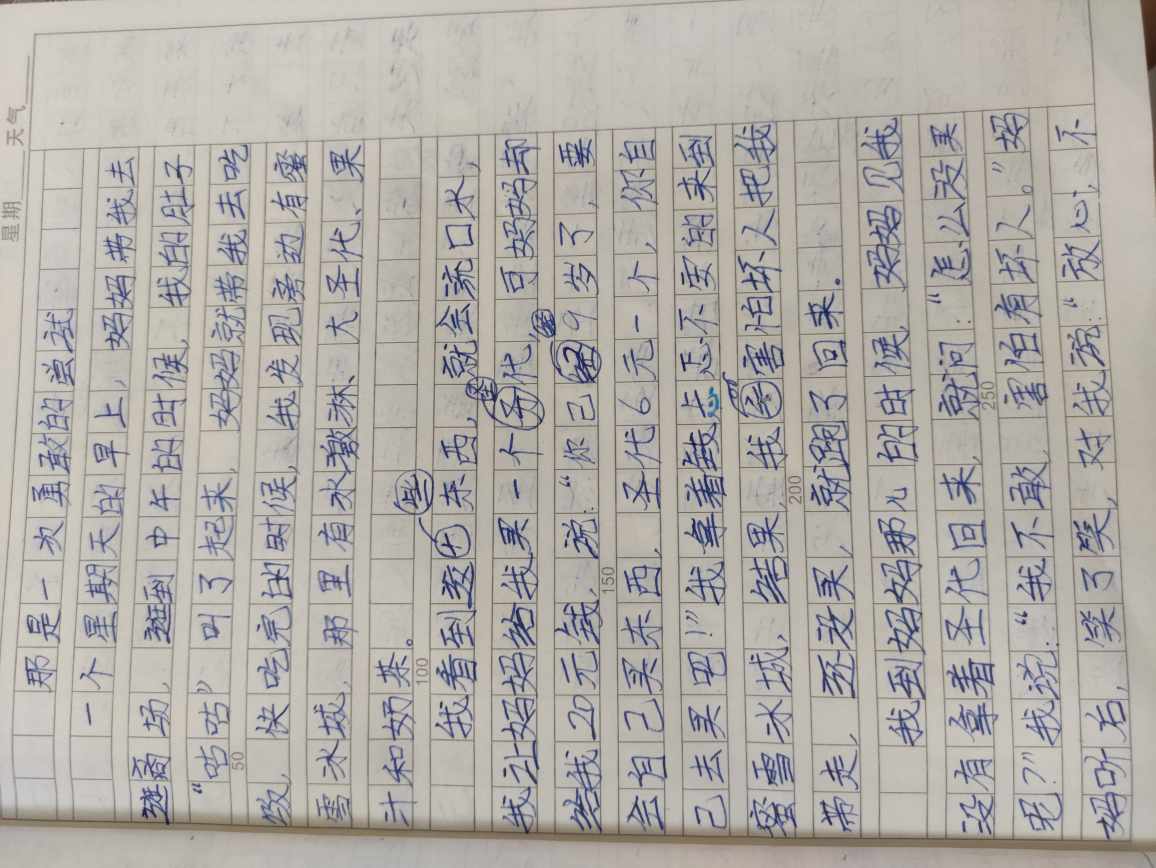 星期 天气
那是一次勇敢的尝试
一个星期天的早上，妈妈带我去
逛商场，逛到中午的时候，我的肚子
“咕咕”叫了起来，妈妈就带我去吃
50
饭，快吃完的时候，我发现旁边有蜜
雪冰城，那里有冰激淋、大圣代、果
汁和奶茶。
100
我看到这些东西，就会流口水，
我让妈妈给我买一个圣代，可妈妈却
给我20元钱，说：“你已经9岁了，要
150
会自己买东西，圣代6元一个，你自
己去买吧！”我拿着钱忐忑不安的来到
蜜雪冰城，结果，我害怕坏人把我
200
带走，还没买，就跑了回来。
我到妈妈那儿的时候，妈妈见我
没有拿着圣代回来，就问：“怎么没买
250
呢？”我说：“我不敢，害怕有坏人。”妈
妈听后，笑了笑，对我说：“放心，不